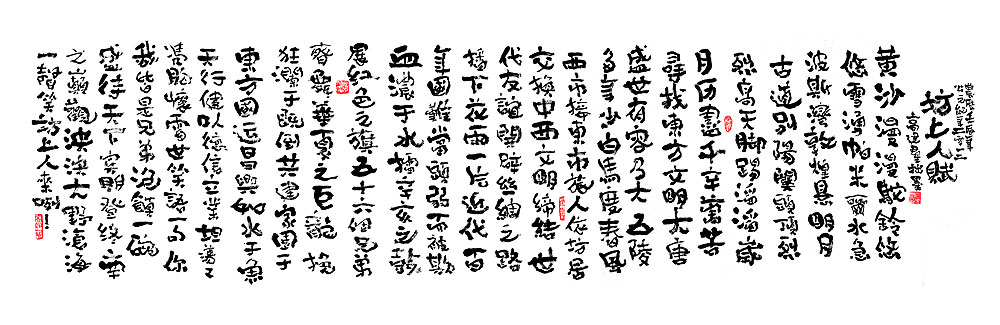 坊上人賦
黄沙漫漫駝鈴悠
悠雪湧帕米爾水急
波斯灣敦煌具明月
古道别陽關頭頂烈
烈高天脚踢滔滔歲
月历盡千辛萬苦
尋找東方文明大唐
盛世有容乃大五陵
多年少白馬度春風
西市接東市巷人依坊居
交换中西文明締結世
代友誼開辟絲綢之路
播下花雨一后近代百
年國難當頭弱而被欺
血濃于水擂辛亥之鼓
展红色之旗五十六個兄弟
齊舞華夏之巨龍挽
狂瀾于既倒共建家園于
東方國运昌興如水于魚
天行健以德信立業坦蕩
馮胸懷雷世笑語一句你
我皆是兄弟泡饃一碗
盛待天下賓朋登終南
之巔觀泱泱大野滄海
一聲笑坊上人來啊！